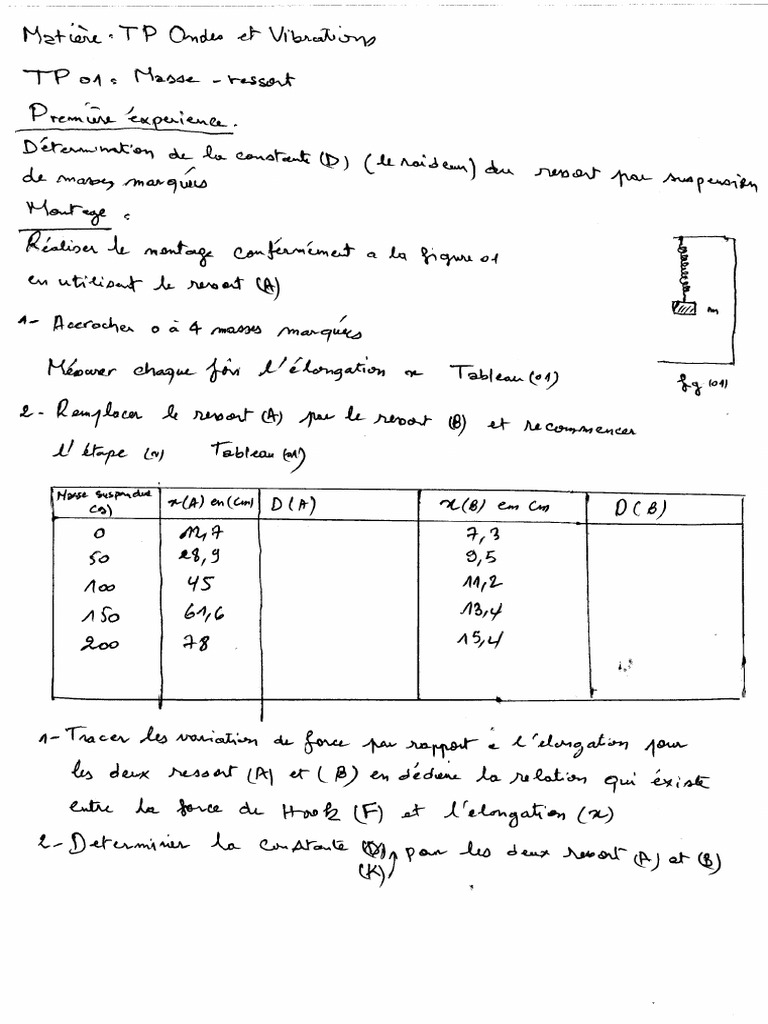 Matière : TP Ondes et Vibrations
TP 01 : Masse - ressort
Première éxperience.
Détermination de la constante (D) (le raideur) du ressort par suspension
de masses marquées
Montage :
Réaliser le montage conformément a la figure 01
en utilisant le ressort (A)
m
1- Accrocher 0 à 4 masses marquées
Mésurer chaque fois l'élongation x Tableau (01)
fg (01)
2- Remplacer le ressort (A) par le ressort (B) et recommencer
l'étape Tableau (01)
Masse suspendue (g) x(A) en (cm) D(A) x(B) em cm D(B)
0 12,7 7,3
50 28,9 9,5
100 45 11,2
150 61,6 13,4
200 78 15,4
1- Tracer les variation de force par rapport à l'élongation pour
les deux ressort (A) et (B) en dédiure la relation qui éxiste
entre la force de Hook (F) et l'élongation (x)
2- Determinier la constante (D) pour les deux ressort (A) et (B)
(K)